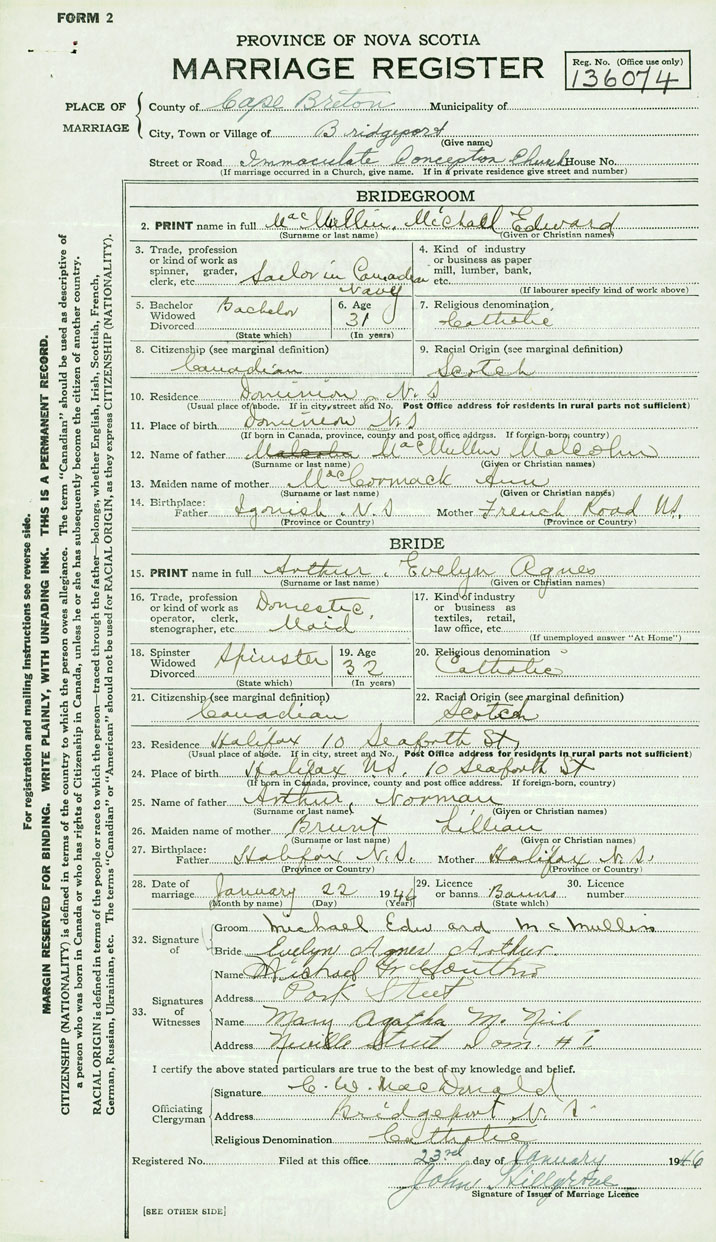 FORM 2
PROVINCE OF NOVA SCOTIA
MARRIAGE REGISTER
Reg. No. (Office use only)
136074
PLACE OF MARRIAGE
County of Cape Breton Municipality of
City, Town or Village of Bridgeport
(Give name)
Street or Road Immaculate Conception Church House No.
(If marriage occurred in a Church, give name. If in a private residence give street and number)
BRIDEGROOM
2. PRINT name in full MacMullin, Michael Edward
(Surname or last name) (Given or Christian names)
3. Trade, profession or kind of work as spinner, grader, clerk, etc. Sailor in Canadian Navy
4. Kind of industry or business as paper mill, lumber, bank, etc.
(If labourer specify kind of work above)
5. Bachelor Widowed Divorced Bachelor
(State which)
6. Age 31
(In years)
7. Religious denomination Catholic
8. Citizenship (see marginal definition) Canadian
9. Racial Origin (see marginal definition) Scotch
10. Residence Dominion, N.S
(Usual place of abode. If in city, street and No. Post Office address for residents in rural parts not sufficient)
11. Place of birth Dominion N.S
(If born in Canada, province, county and post office address. If foreign-born, country)
12. Name of father Malcolm MacMullin Malcolm
(Surname or last name) (Given or Christian names)
13. Maiden name of mother MacCormack Ann
(Surname or last name) (Given or Christian names)
14. Birthplace: Father Igonish N.S Mother French Road N.S.
(Province or Country) (Province or Country)
BRIDE
15. PRINT name in full Arthur, Evelyn Agnes
(Surname or last name) (Given or Christian names)
16. Trade, profession or kind of work as operator, clerk, stenographer, etc. Domestic Maid
17. Kind of industry or business as textiles, retail, law office, etc.
(If unemployed answer "At Home")
18. Spinster Widowed Divorced Spinster
(State which)
19. Age 32
(In years)
20. Religious denomination Catholic
21. Citizenship (see marginal definition) Canadian
22. Racial Origin (see marginal definition) Scotch
23. Residence Halifax 10 Seaforth St
(Usual place of abode. If in city, street and No. Post Office address for residents in rural parts not sufficient)
24. Place of birth Halifax N.S. 10 Seaforth St
(If born in Canada, province, county and post office address. If foreign-born, country)
25. Name of father Arthur, Norman
(Surname or last name) (Given or Christian names)
26. Maiden name of mother Brunt Lillian
(Surname or last name) (Given or Christian names)
27. Birthplace: Father Halifax N.S. Mother Halifax N.S.
(Province or Country) (Province or Country)
28. Date of marriage January 22 1946
(Month by name) (Day) (Year)
29. Licence or banns Banns
(State which)
30. Licence number
32. Signature of
Groom Michael Edward McMullin
Bride Evelyn Agnes Arthur
33. Signatures of Witnesses
Name Michael
Address Park Street
Name Mary Agatha McNeil
Address Neville Street Dom. #1
I certify the above stated particulars are true to the best of my knowledge and belief.
Officiating Clergyman
Signature C. W. MacDonald
Address Bridgeport N.S.
Religious Denomination Catholic
Registered No. Filed at this office 23rd day of January 1946
John Hillgrove
Signature of Issuer of Marriage Licence
[SEE OTHER SIDE]
For registration and mailing instructions see reverse side.
MARGIN RESERVED FOR BINDING. WRITE PLAINLY, WITH UNFADING INK. THIS IS A PERMANENT RECORD.
CITIZENSHIP (NATIONALITY) is defined in terms of the country to which the person owes allegiance. The term "Canadian" should be used as descriptive of
a person who was born in Canada or who has rights of Citizenship in Canada, unless he or she has subsequently become the citizen of another country.
RACIAL ORIGIN is defined in terms of the people or race to which the person—traced through the father—belongs, whether English, Irish, Scottish, French,
German, Russian, Ukrainian, etc. The terms "Canadian" or "American" should not be used for RACIAL ORIGIN, as they express CITIZENSHIP (NATIONALITY).